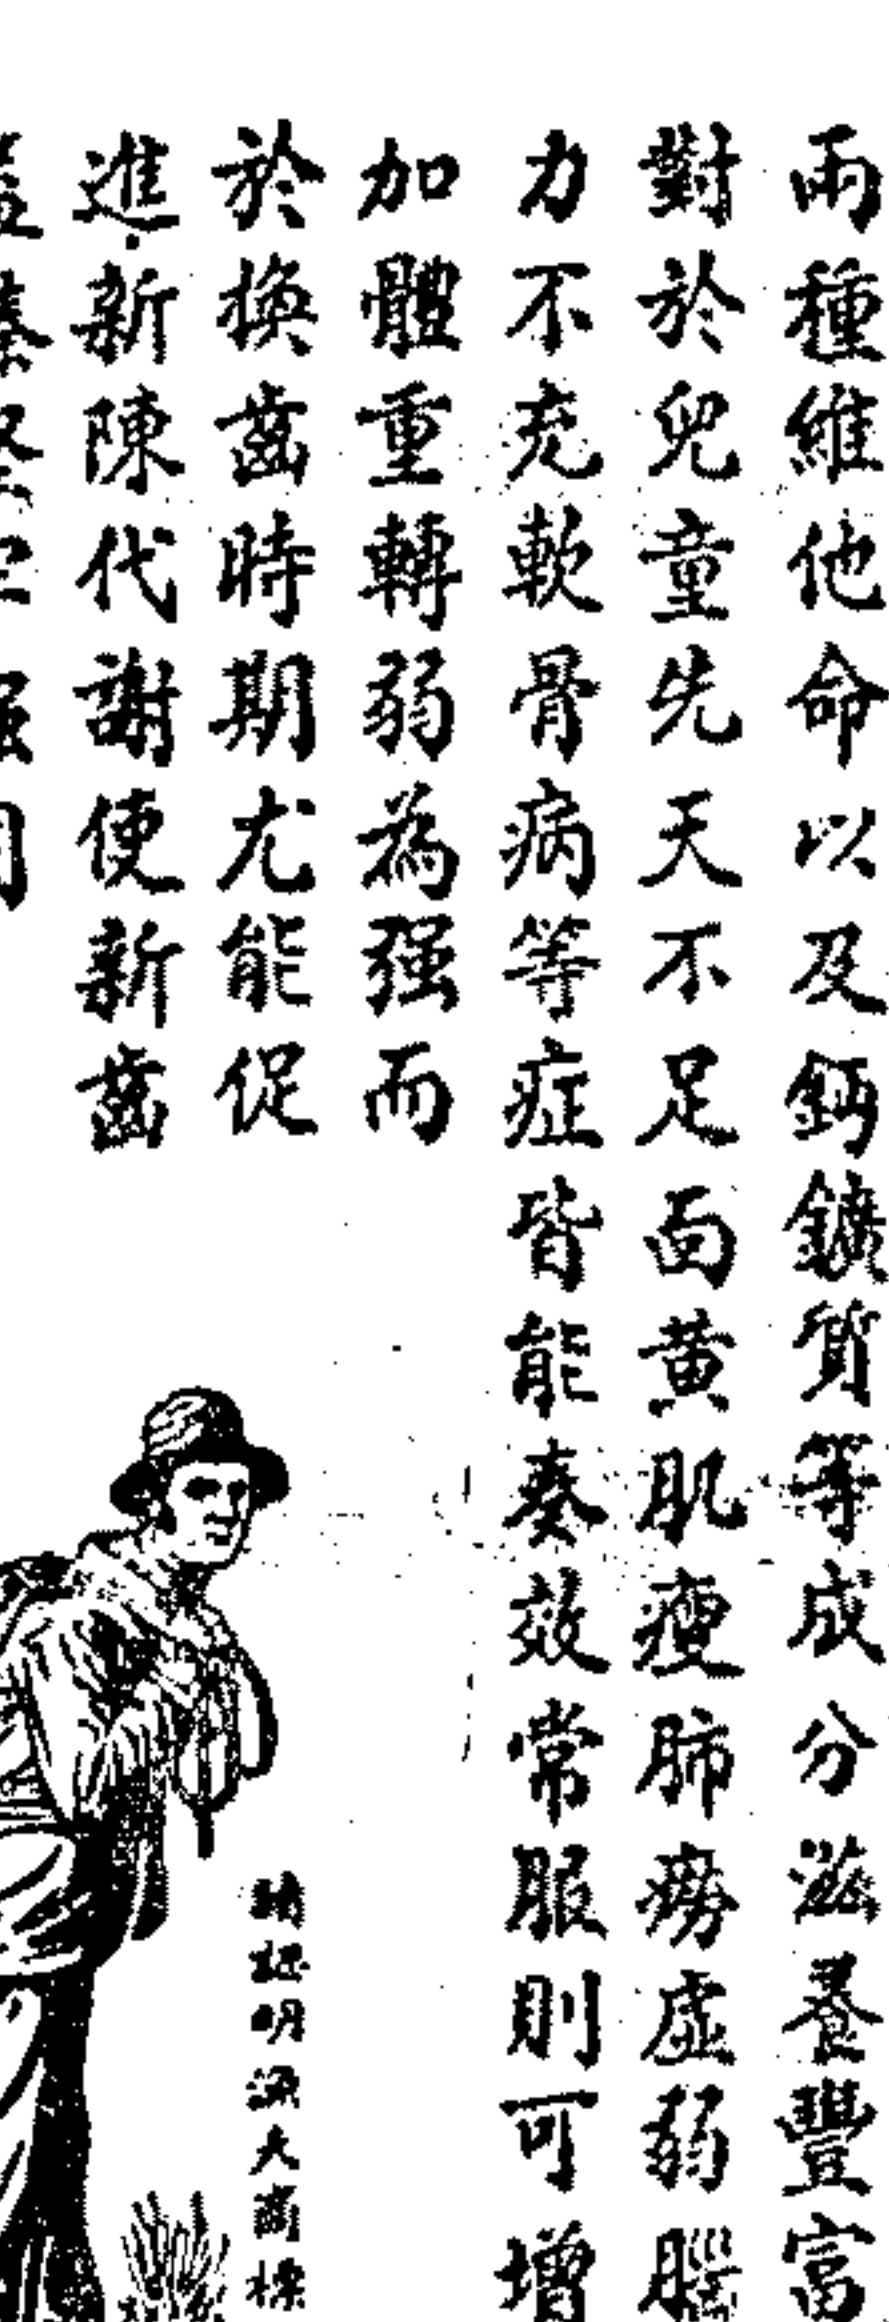 兩種維他命以及鈣鑛質等成分滋養豐富
對於兒童先天不足面黄肌瘦肺癆虛弱腦
力不充軟骨病等症皆能奏效常服則可增
加體重轉弱為强而
於換齒時期尤能促
進新陳代謝使新齒
請認明漁夫商標